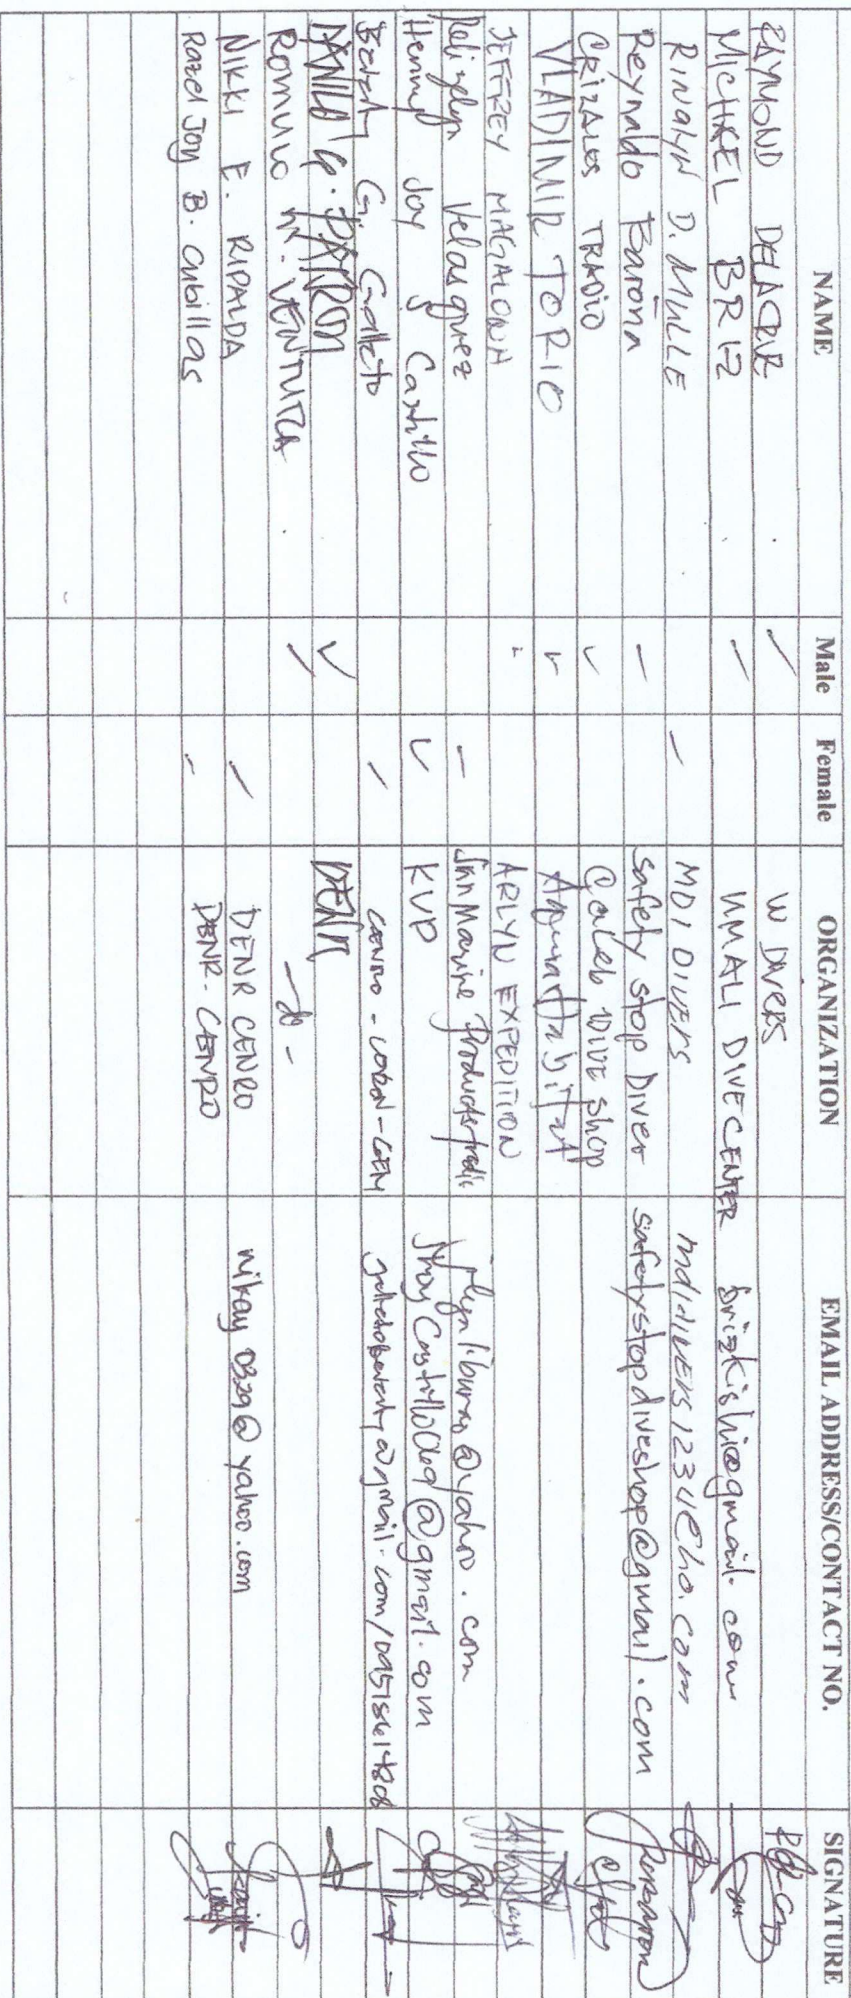 NAME Male Female ORGANIZATION EMAIL ADDRESS/CONTACT NO. SIGNATURE
RAYMOND DELACRUZ / W DIVERS
MICHAEL BRIZ / UMALI DIVE CENTER brizkishi@gmail.com
RINALYN D. MULLE / MDI DIVERS
Reynaldo Barona / Safety stop Diver safetystopdiveshop@gmail.com
CRIZALES TRADIO ✓ Caleb DIVE shop
VLADIMIR TORIO ✓ AquaHabitat
JEFFREY MAGALONA ARLYN EXPEDITION
Velasquez / Marine Products @yahoo.com
Henny Joy S Castillo ✓ KVP JhoyCastillo069@gmail.com
G. Galleto / CENRO - CORON - @gmail.com/
DANILO G. PATRON ✓ DENR
Romulo VENTURA / -do-
NIKKI E. RIPALDA / DENR CENRO nikay0329@yahoo.com
Razel Joy B. Cubillas / DENR-CENRO